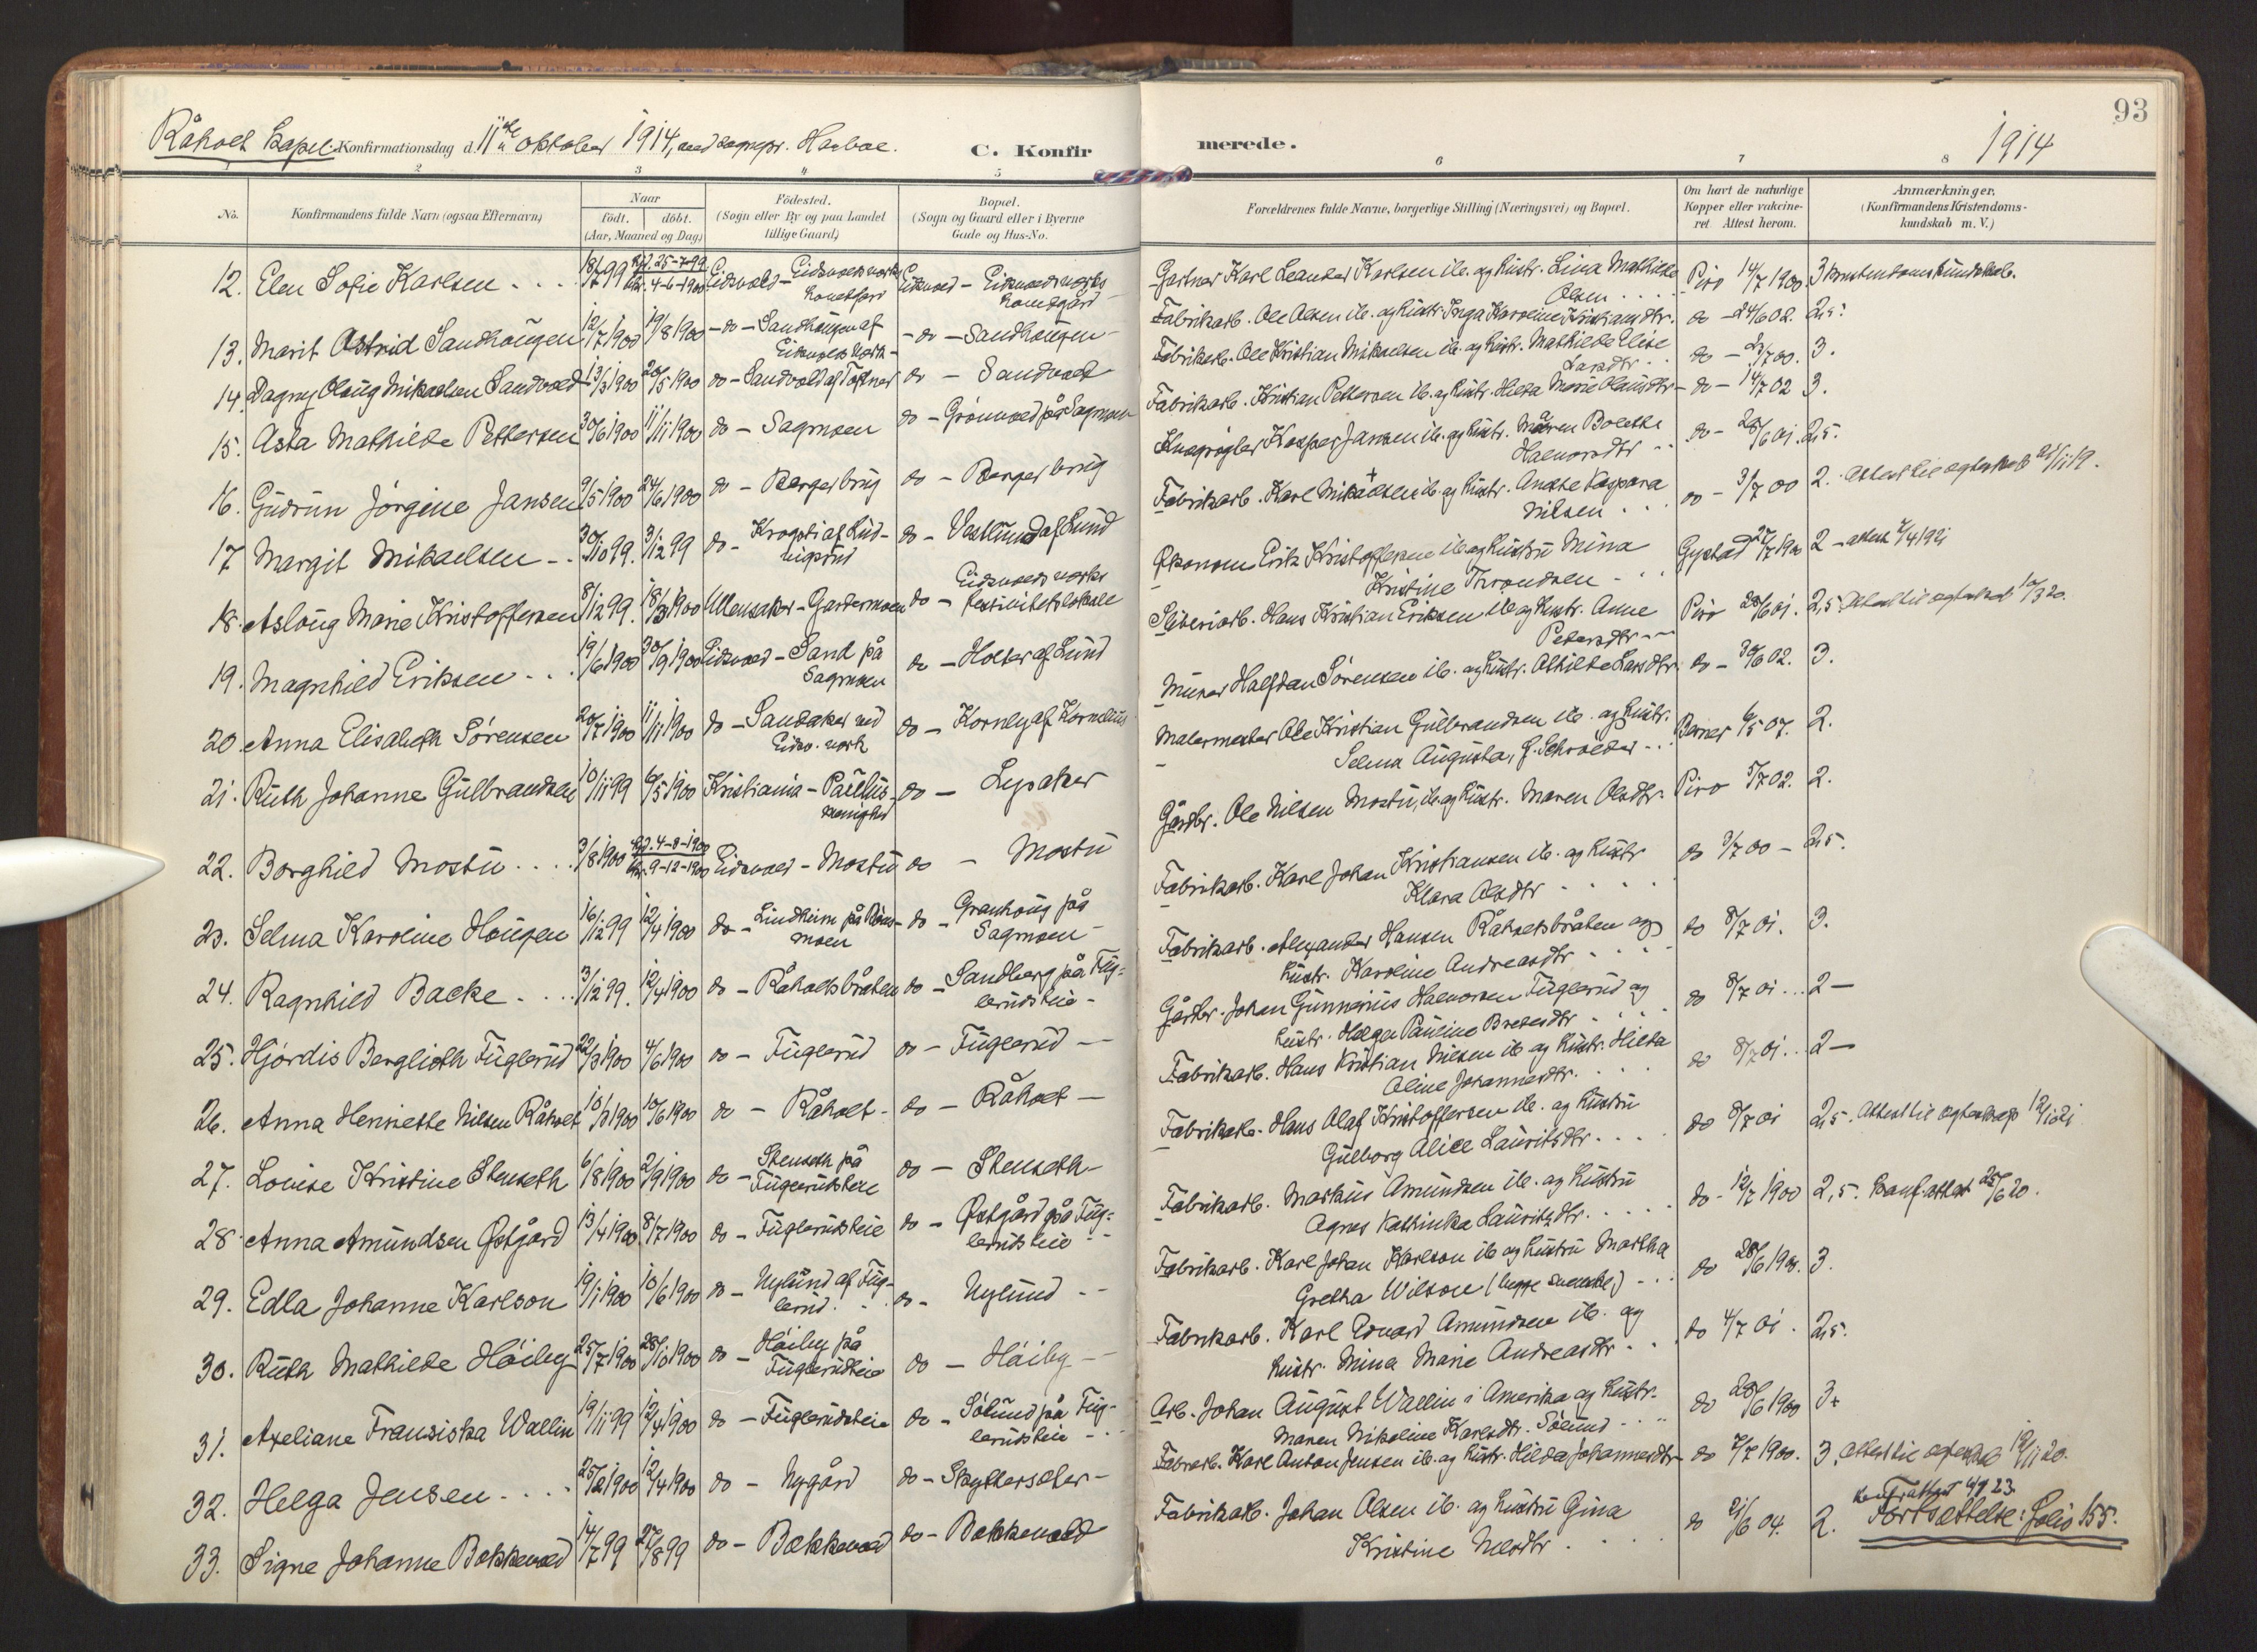 93
Råholt Kapel. Konfirmationsdag d. 11te oktober 1914, ved sognepr. Harboe.
C. Konfirmerede.
1914
1 2 3 4 5 6 7 8
No.
Konfirmandens fulde Navn (ogsaa Efternavn)
Naar
født. døbt.
(Aar, Maaned og Dag)
Födested.
(Sogn eller By og paa Landet tillige Gaard)
Bopæl.
(Sogn og Gaard eller i Byerne Gade og Hus-No.
Forældrenes fulde Navne, borgerlige Stilling (Næringsvei) og Bopæl.
Om havt de naturlige Kopper eller vaccineret Attest herom.
Anmærkninger.
(Konfirmandens Kristendomskundskab m. V.)
12. Elen Sofie Karlsen 18/7 99 25-7-99 4-6-1900 Eidsvold - Eidsvolds verks Eidsvold - Eidsvolds verks Gartner Karl Leander Karlsen ib. og hustr. Lina Mathilde Olsen Piro 14/7 1900 3 kristendomskundskab.
13. Marit Astrid Sandhaugen 12/7 1900 19/8 1900 - do - Sandhaugen af Eidsvolds verk - do - Sandhaugen Fabrikarb. Ole Olsen ib. og hustr. Inga Karoline Kristiansdtr. do - 24/6 02. 2,5.
14. Dagny Olaug Mikaelsen Sandvold 13/3 1900 20/5 1900 do - Sandvold af Tøfner do - Sandvold Fabrikarb. Ole Kristian Mikaelsen ib. og hustr. Mathilde Elise Larsdtr. do 3.
15. Asta Mathilde Pettersen 30/6 1900 11/11 1900 do - Sagmoen do - Grönvold på Sagmoen Fabrikarb. Kristian Pettersen ib. og hustr. Hilda Marie Olausdtr. - do - 14/7 02 3.
16. Gudrun Jörgine Jansen 9/5 1900 24/6 1900 do - Berger brug do - Berger brug Kasper Jansen ib. og hustr. Maren Bolette Halvorsdtr. do - 28/6 01. 2,5.
17 Margit Mikaelsen 30/10 99. 3/12 99 do - Krogsti af Ludvigsrud do - Vestlund af Lund Fabrikarb. Karl Mikaelsen ib. og hustr. Anette Kaspara Nilsen do - 3/7 00 2. Attest til ægteskab 21/11 19.
18. Aslaug Marie Kristoffersen 8/12 99. 18/3 1900 Ullensaker - Gardermoen do - Eidsvolds verks festivitetslokale Økonom Erik Kristoffersen ib. og hustru Mina Kristine Throndsen Gystad 27/7 1900 2 - attest 4/4 1921
19. Magnhild Eriksen 19/6 1900 30/9 1900 Eidsvold - Sand på Sagmoen do - Holter af Lund Sliberiarb. Hans Kristian Eriksen ib. og hustr. Anne Petersdtr. Piro 28/6 01. 2,5. Attest til ægteskab 10/3 20.
20. Anna Elisabeth Sörensen 20/7 1900 11/11 1900 do - Sandaker ved Eidsv. verk do - Kornely af Kornelius Murer Halfdan Sörensen ib. og hustr. Athilde Larsdtr. do - 30/6 02. 3.
21. Ruth Johanne Gulbrandsen 10/11 99 6/5 1900 Kristiania - Paulus menighed do - Lysaker Malermester Ole Kristian Gulbrandsen ib. og hustr. Selma Augusta, f. Schroeder Berner 6/5 07. 2.
22. Borghild Mostu 3/8 1900 4-8-1900 9-12-1900 Eidsvold - Mostu do - Mostu Gårdbr. Ole Nilsen Mostu, ib. og hustr. Maren Olsdtr. Piro 5/7 02. 2.
23. Selma Karoline Haugen 16/12 99 12/4 1900 do - Lindheim på Rømoen do - Granhaug på Sagmoen Fabrikarb. Karl Johan Kristiansen ib. og hustr. Klara Olsdtr. do 3/7 00 - 2,5.
24. Ragnhild Backe 3/12 99. 12/4 1900 do - Råholtsbråten do - Sandberg på Fuglerudseie Fabrikarb. Alexander Hansen Råholtsbråten og hustr. Karoline Andreasdtr. do 8/7 01. 3.
25. Hjördis Berglioth Fuglerud 22/3 1900 4/6 1900 do - Fuglerud do - Fuglerud Gårdbr. Johan Gunnerius Halvorsen Fuglerud og hustr. Helga Pauline Bredesdtr. do 8/7 01 2 -
26. Anna Henriette Nilsen Råholt 10/6 1900 do - Råholt do - Råholt Fabrikarb. Hans Kristian Nilsen ib. og hustr. Hilda Oline Johannesdtr. do 8/7 01 2 -
27. Lovise Kristine Stenseth 6/8 1900 2/9 1900 do - Stenseth på Fuglerudseie do - Stenseth Fabrikarb. Hans Olaf Kristoffersen ib. og hustru Gulborg Alice Lauritsdtr. do 8/7 01 2,5. Attest til ægteskap 12/1 21
28. Anna Amundsen Østgård 13/4 1900. 8/7 1900 do - Fuglerudseie do - Østgård på Fuglerudseie Fabrikarb. Markus Amundsen ib. og hustru Agnes Kathinka Lauritsdtr. do - 12/7 1900 2,5. Konf. attest 25/6 20.
29. Edla Johanne Karlson 19/1 1900 10/6 1900 do - Nylund af Fuglerud do - Nylund Fabrikarb. Karl Johan Karlson ib. og hustru Martha Gretha Wilson (begge svenske) do 28/6 1900. 3.
30. Ruth Mathilde Höiby 25/7 1900 28/10 1900 do - Höiby på Fuglerudseie do - Höiby Fabrikarb. Karl Edvard Amundsen ib. og hustr. Mina Marie Andreasdtr. do 4/7 01. 2,5.
31. Axeliane Fransiska Wallin 19/11 99 12/4 1900 do - Fuglerudseie do - Sölund på Fuglerudseie Arb. Johan August Wallin i Amerika og hustr. Maren Nikoline Karlsdtr. Sölund do 28/6 1900 3+
32. Helga Jensen 25/2 1900 12/4 1900 do - Nygård do - Skyttersæter Fabrarb. Karl Anton Jensen ib. og hustr. Hilda Johannesdtr. do 7/7 1900. 3. Attest til ægteskab 12/11 20.
33. Signe Johanne Bækkevold 14/7 99 27/8 99 do - Bækkevold do - Bækkevold Fabrikarb. Johan Olsen ib. og hustru Gina Kristine Nilsdtr. do 21/6 04. 2. Konf. attest 4/9 23.
Fortsættelse: Folio 155.